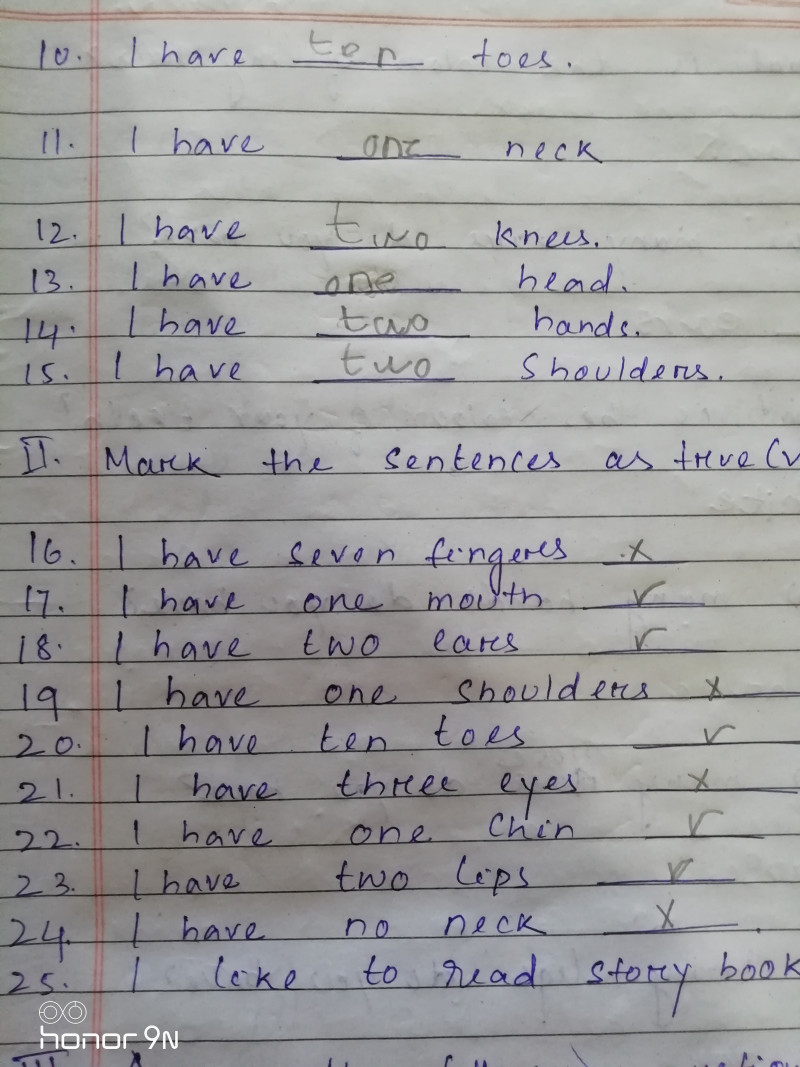 10. I have ten toes.
11. I have one neck
12. I have two knees.
13. I have one head.
14. I have two hands.
15. I have two shoulders.
II. Mark the sentences as true (v
16. I have seven fingers x
17. I have one mouth ✓
18. I have two ears ✓
19 I have one shoulders x
20. I have ten toes ✓
21. I have three eyes x
22. I have one chin ✓
23. I have two lips ✓
24. I have no neck x
25. I like to read story book
honor 9N